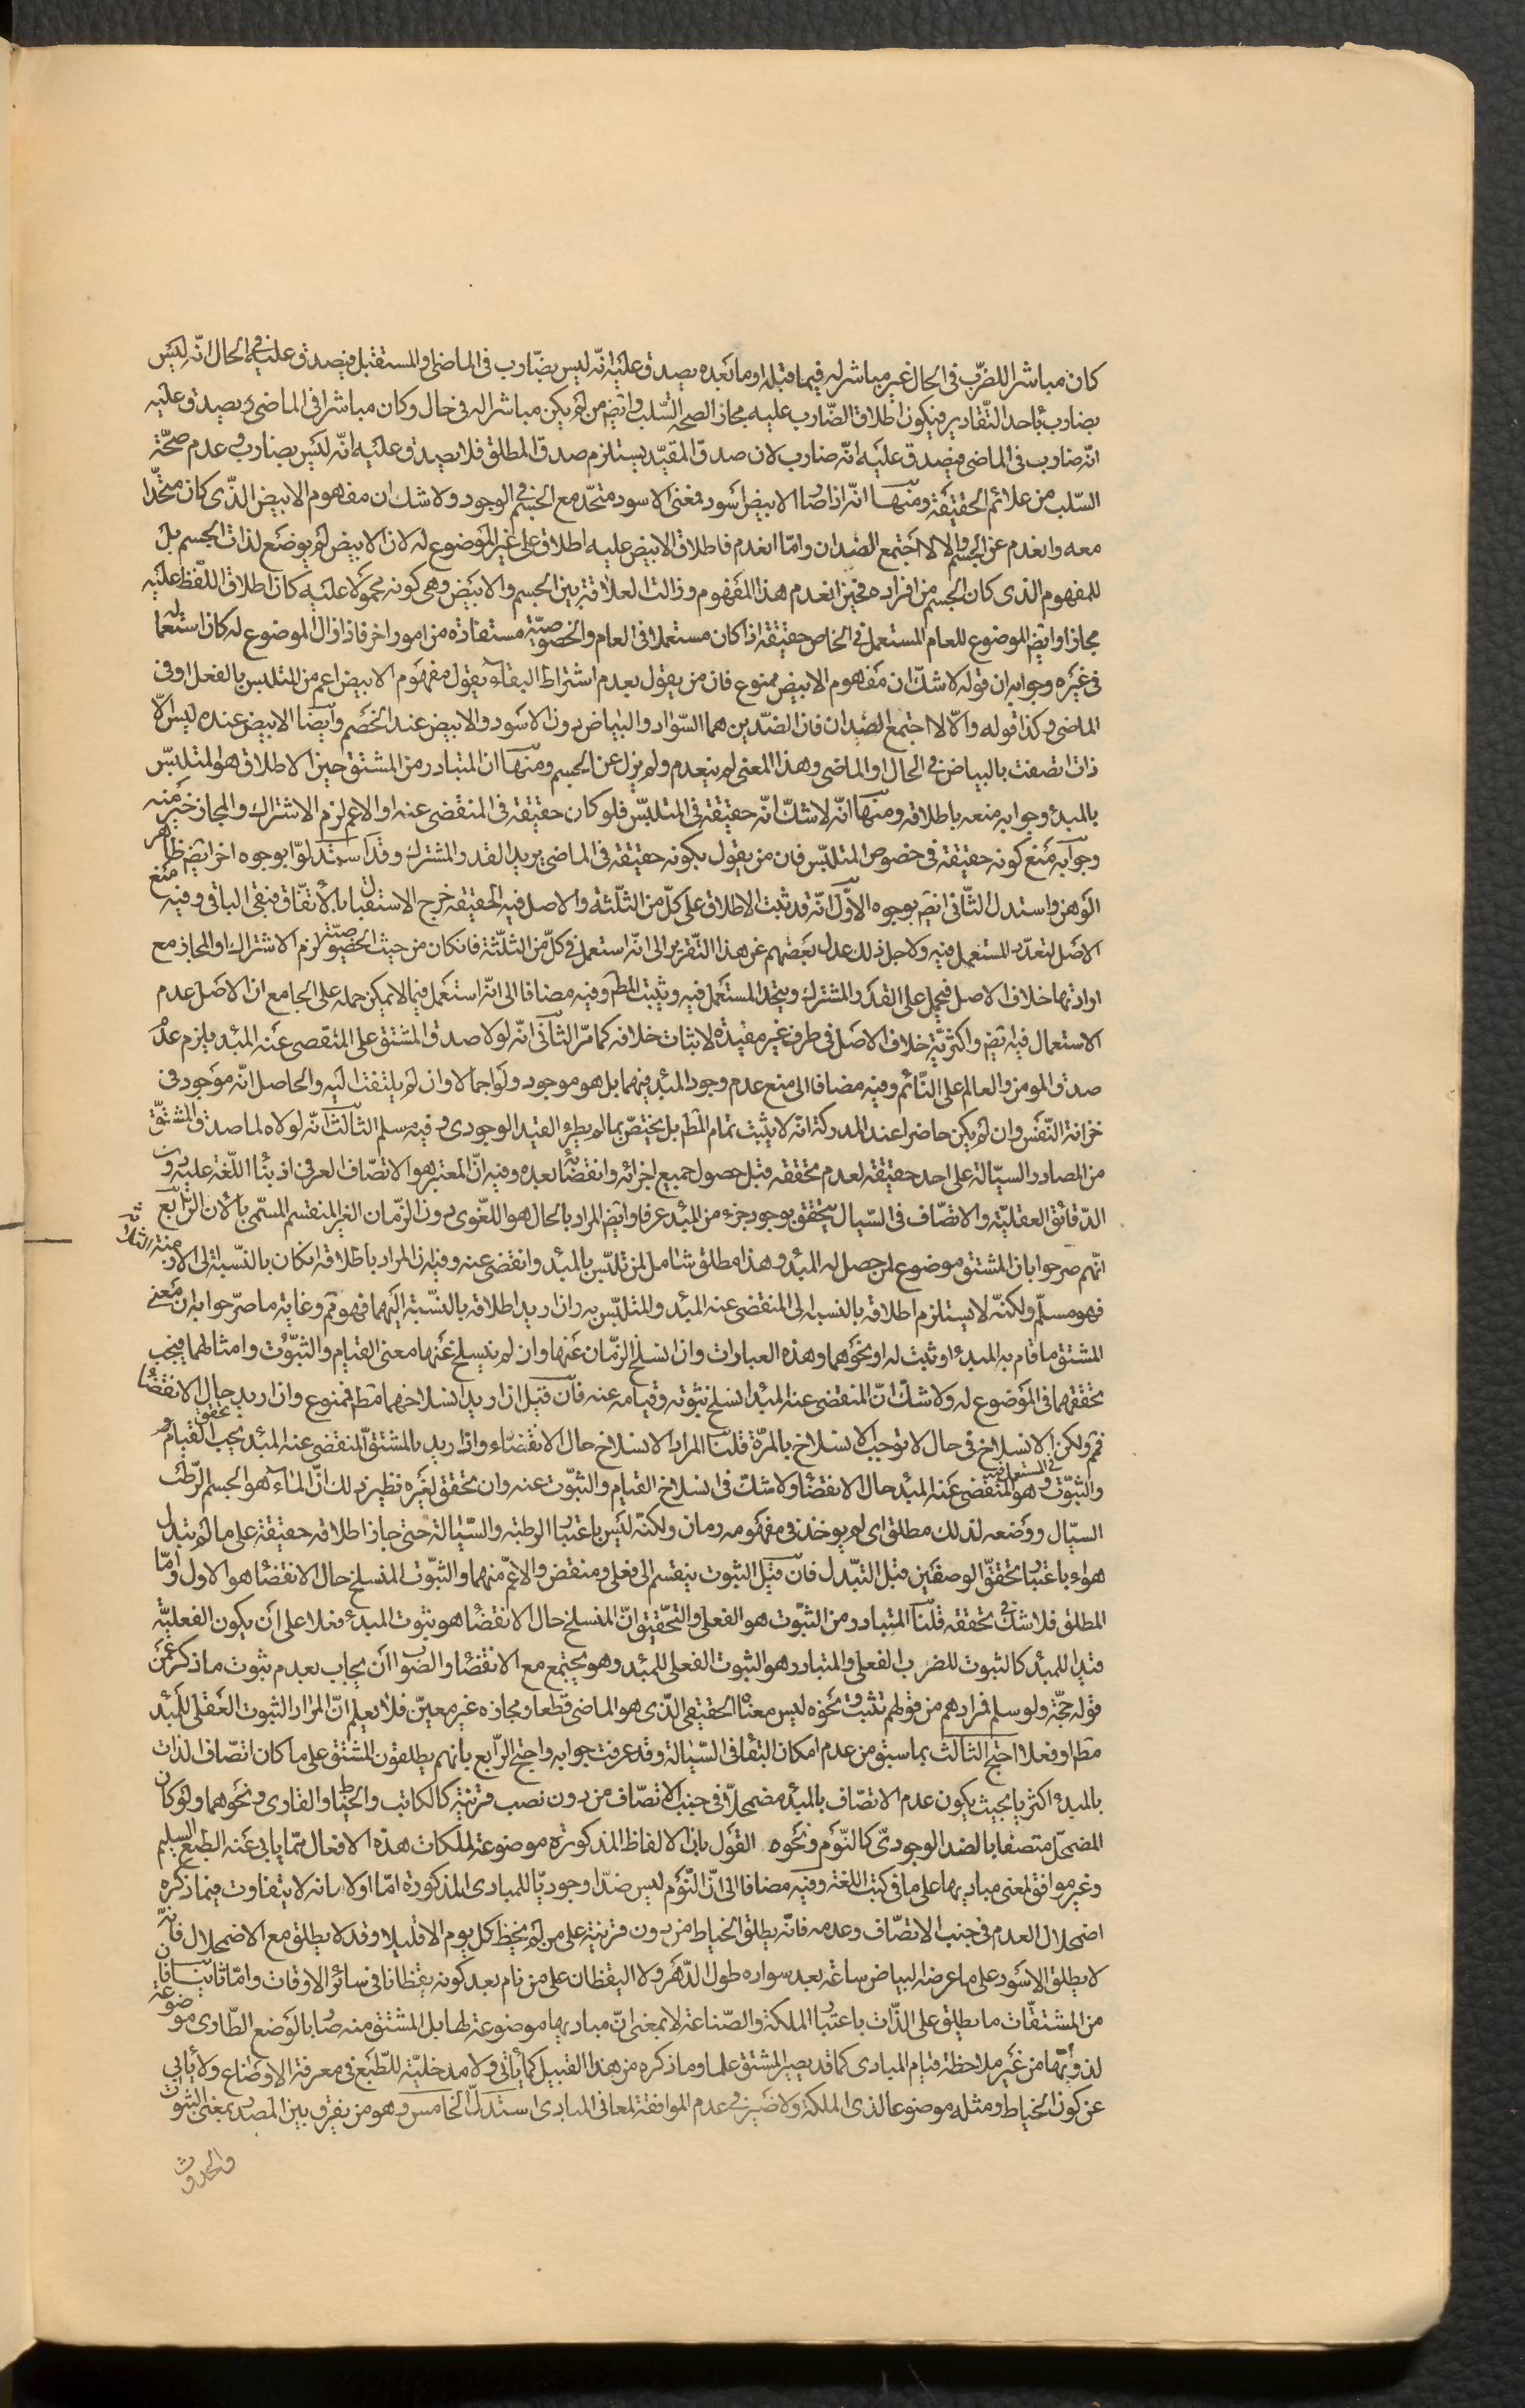 كان مباشرا للضرب فى الحال غير مباشر له فيما قبله او ما بعده يصدق عليه انّه ليس بضارب فى الماضى والمستقبل فيصدق عليه فى الحال انّه ليس
بضارب باحد التّقادير فيكون اطلاق الضّارب عليه مجازا لصحة السّلب وايضا من لم يكن مباشرا له فى حال وكان مباشرا فى الماضى يصدق عليه
انّه ضارب فى الماضى فيصدق عليه انّه ضارب لان صدق المقيّد يستلزم صدق المطلق فلا يصدق عليه انّه ليس بضارب وعدم صحّة
السّلب من علائم الحقيقة ومنها انّه اذا صار الابيض اسود فمعنى الاسود متحد مع الجسم فى الوجود ولا شك ان مفهوم الابيض الّذى كان متحدا
معه وانعدم عن الجسم والا لاجتمع الضدان وامّا انعدم فاطلاق الابيض عليه اطلاق على غير الموضوع له لان الابيض لم يوضع لذات الجسم بل
للمفهوم الذى كان الجسم من افراده فحين انعدم هذا المفهوم وزالت العلاقة بين الجسم والابيض وهى كونه محمولا عليه كان اطلاق اللّفظ عليه
مجازا وايضا الموضوع للعام المستعمل فى الخاص حقيقة اذا كان مستعملا فى العام والخصوصيّة مستفادة من امور اخر فاذا زال الموضوع له كان استعماله
فى غيره وجوابه ان قوله لا شكّ ان مفهوم الابيض ممنوع فان من يقول بعدم اشتراط البقاء يقول مفهوم الابيض اعم من المتلبس بالفعل او فى
الماضى وكذا قوله والّا لاجتمع الضدان فان الضّدين هما السّواد والبياض دون الاسود والابيض عند الخصم وايضا الابيض عنده ليس الّا
ذات اتصفت بالبياض فى الحال او الماضى وهذا المعنى لم ينعدم ولم يزل عن الجسم ومنها ان المتبادر من المشتق حين الاطلاق هو المتلبّس
بالمبدء وجوابه منعه باطلاقه ومنها انّه لا شكّ انّه حقيقة فى المتلبّس فلو كان حقيقة فى المنقضى عنه او الاعم لزم الاشتراك والمجاز خير منه
وجوابه منع كونه حقيقة فى خصوص المتلبّس فان من يقول بكونه حقيقة فى الماضى يريد القدر المشترك وقد استدلّوا بوجوه اخر ايضا ظاهر
الوهن واستدل الثّانى ايضا بوجوه الاوّل انّه قد ثبت الاطلاق على كلّ من الثّلثة والاصل فيه الحقيقة خرج الاستقبال بالاتّفاق فبقى الباقى وفيه منع
الاصل لتعدّد المستعمل فيه ولاجل ذلك عدل بعضهم عن هذا التّقرير الى انّه استعمل فى كلّ من الثلّثة فان كان من حيث الخصوصيّة لزم الاشتراك او المجاز مع
ارادتها خلاف الاصل فيحمل على القدر المشترك ويتحد المستعمل فيه ويثبت المط وفيه مضافا الى انّه استعمل فيما لا يمكن حمله على الجامع ان الاصل عدم
الاستعمال فيه ايضا واكثريّة خلاف الاصل فى طرف غير مفيدة لاثبات خلافه كما مرّ الثّانى انّه لولا صدق المشتق على المنقضى عنه المبدء يلزم عدم
صدق المومن والعالم على النّائم وفيه مضافا الى منع عدم وجود المبدء فيهما بل هو موجود ولو اجمالا وان لم يلتفت اليه والحاصل انّه موجود فى
خزانة النّفس وان لم يكن حاضرا عند المدركة انّه لا يثبت تمام المط بل يختصّ بما لم يطرء القيد الوجودى وفيه سلم الثّالث انّه لولاه لما صدق المشتقّ
من المصادر السيّالة على احد حقيقة لعدم تحققه قبل حصول جميع اجزائه وانقضائه بعده وفيه انّ المعتبر هو الاتصّاف العرفى اذ بناء اللّغة عليه دون
الدّقائق العقليّة والاتصّاف فى السّيال يتحقق بوجود جزء من المبدء عرفا وايضا المراد بالحال هو اللّغوى دون الزّمان الغير المنقسم المسّمى بالان الرّابع
انّهم صرحوا بان المشتق موضوع لمن حصل له المبدء وهذا مطلق شامل لمن تلبّس بالمبدء وانقضى عنه وفيه ان المراد باطلاقه ان كان بالنّسبة الى الازمنة الثلاثة
فهو مسلّم ولكنّه لا يستلزم اطلاقه بالنسبة الى المنقضى عنه المبدء والمتلبّس به وان اريد اطلاقه بالنّسبة اليهما فهو مم وغاية ما صرّحوا به ان معنى
المشتق ما قام به المبدء او ثبت له او نحوهما وهذه العبارات وان انسلخ الزمّان عنها وان لم ينسلخ عنها معنى القيام والثبّوت وامثالهما فيجب
تحققهما فى الموضوع له ولا شكّ انّ المنقضى عنه المبدء انسلخ ثبوته وقيامه عنه فان قيل ان اريد انسلاخهما مط فممنوع وان اريد حال الانقضاء
فمم ولكن الانسلاخ فى حال لا توجب الانسلاخ بالمرّة قلنا المراد الانسلاخ حال الانقضاء واذا اريد بالمشتق المنقضى عنه المبدء يجب تحقق القيام
والثبّوت فى المستعمل فيه وهو المنقضى عنه المبدء حال الانقضاء ولا شكّ فى انسلاخ القيام والثبّوت عنه وان تحقق لغيره نظير ذلك انّ الماء هو الجسم الرّطب
السيّال ووضعه لذلك مطلق اى لم يوخذ فى مفهومه زمان ولكنّه ليس باعتبار الرطبة والسّيّالة حتى جاز اطلاقه حقيقة على ما لم يتبدل
هواء باعتبار تحقّق الوصفين قبل التبّدل فان قيل الثبوت ينقسم الى فعلى ومنقض والاعمّ منهما والثبّوت المنسلخ حال الانقضاء هو الاول وامّا
المطلق فلا شك فى تحققه قلنا المتبادر من الثبّوت هو الفعلى والتحّقيق انّ المنسلخ حال الانقضاء هو ثبوت المبدء فعلا على ان يكون الفعليّة
قيدا للمبدء كالثبوت للضرب الفعلى والمتبادر هو الثبوت الفعلى للمبدء وهو يجتمع مع الانقضاء والصّواب ان يجاب بعدم ثبوت ما ذكر عمّن
قوله حجّة ولو سلم فمرادهم من قولهم ثبت ونحوه ليس معناه الحقيقى الّذى هو الماضى قطعا ومجازه غير معيّن فلا يعلم انّ المراد الثبوت الفعلى للمبدء
مط او فعلا احتج الثّالث بما سبق من عدم امكان البقاء فى السّيالة وقد عرفت جوابه واحتج الرّابع بانهم يطلقون المشتق على ما كان اتّصاف لذات
بالمبدء اكثريا بحيث يكون عدم الاتصّاف بالمبدء مضمحلّا فى جنب الاتصّاف من دون نصب قرينة كالكاتب والخيّاط والقارى ونحوهما ولو كان
المضمحلّ متصفا بالضد الوجودىّ كالنّوم ونحوه القول بان الالفاظ المذكورة موضوعة لملكات هذه الافعال ممّا يابى عنه الطبّع السليم
وغير موافق لمعنى مباديها على ما فى كتب اللغة وفيه مضافا الى انّ النّوم ليس ضدّا وجوديّا للمبادى المذكورة امّا اولا بانه لا يتفاوت فيما ذكره
اضمحلال العدم فى جنب الاتصّاف وعدمه فانّه يطلق الخياط من دون قرينة على من لم يخط كل يوم الا قليلا وقد لا يطلق مع الاضمحلال فانّه
لا يطلق الاسود على ما عرضه لبياض ساعة بعد سواده طول الدّهر ولا اليقظان على من نام بعد كونه يقظانا فى سائر الاوقات وامّا ثانيا فان
من المشتقّات ما يطلق على الذّات باعتبار الملكة والصّناعة لا بمعنى انّ مباديها موضوعة لها بل المشتق منه صار بالوضع الطّارى موضوعة
لذوّيها من غير ملاحظة قيام المبادى كما قد يصير المشتق علما وما ذكره من هذا القبيل كما يأتى ولا مدخليّة للطّبع فى معرفة الاوضاع ولا يأبى
عن كون الخياط ومثله موضوعا لذى الملكة ولا ضير فى عدم الموافقة لمعانى المبادى استدلّ الخامس وهو من يفرق بين المصدر بمعنى الثبوت
والحدوث